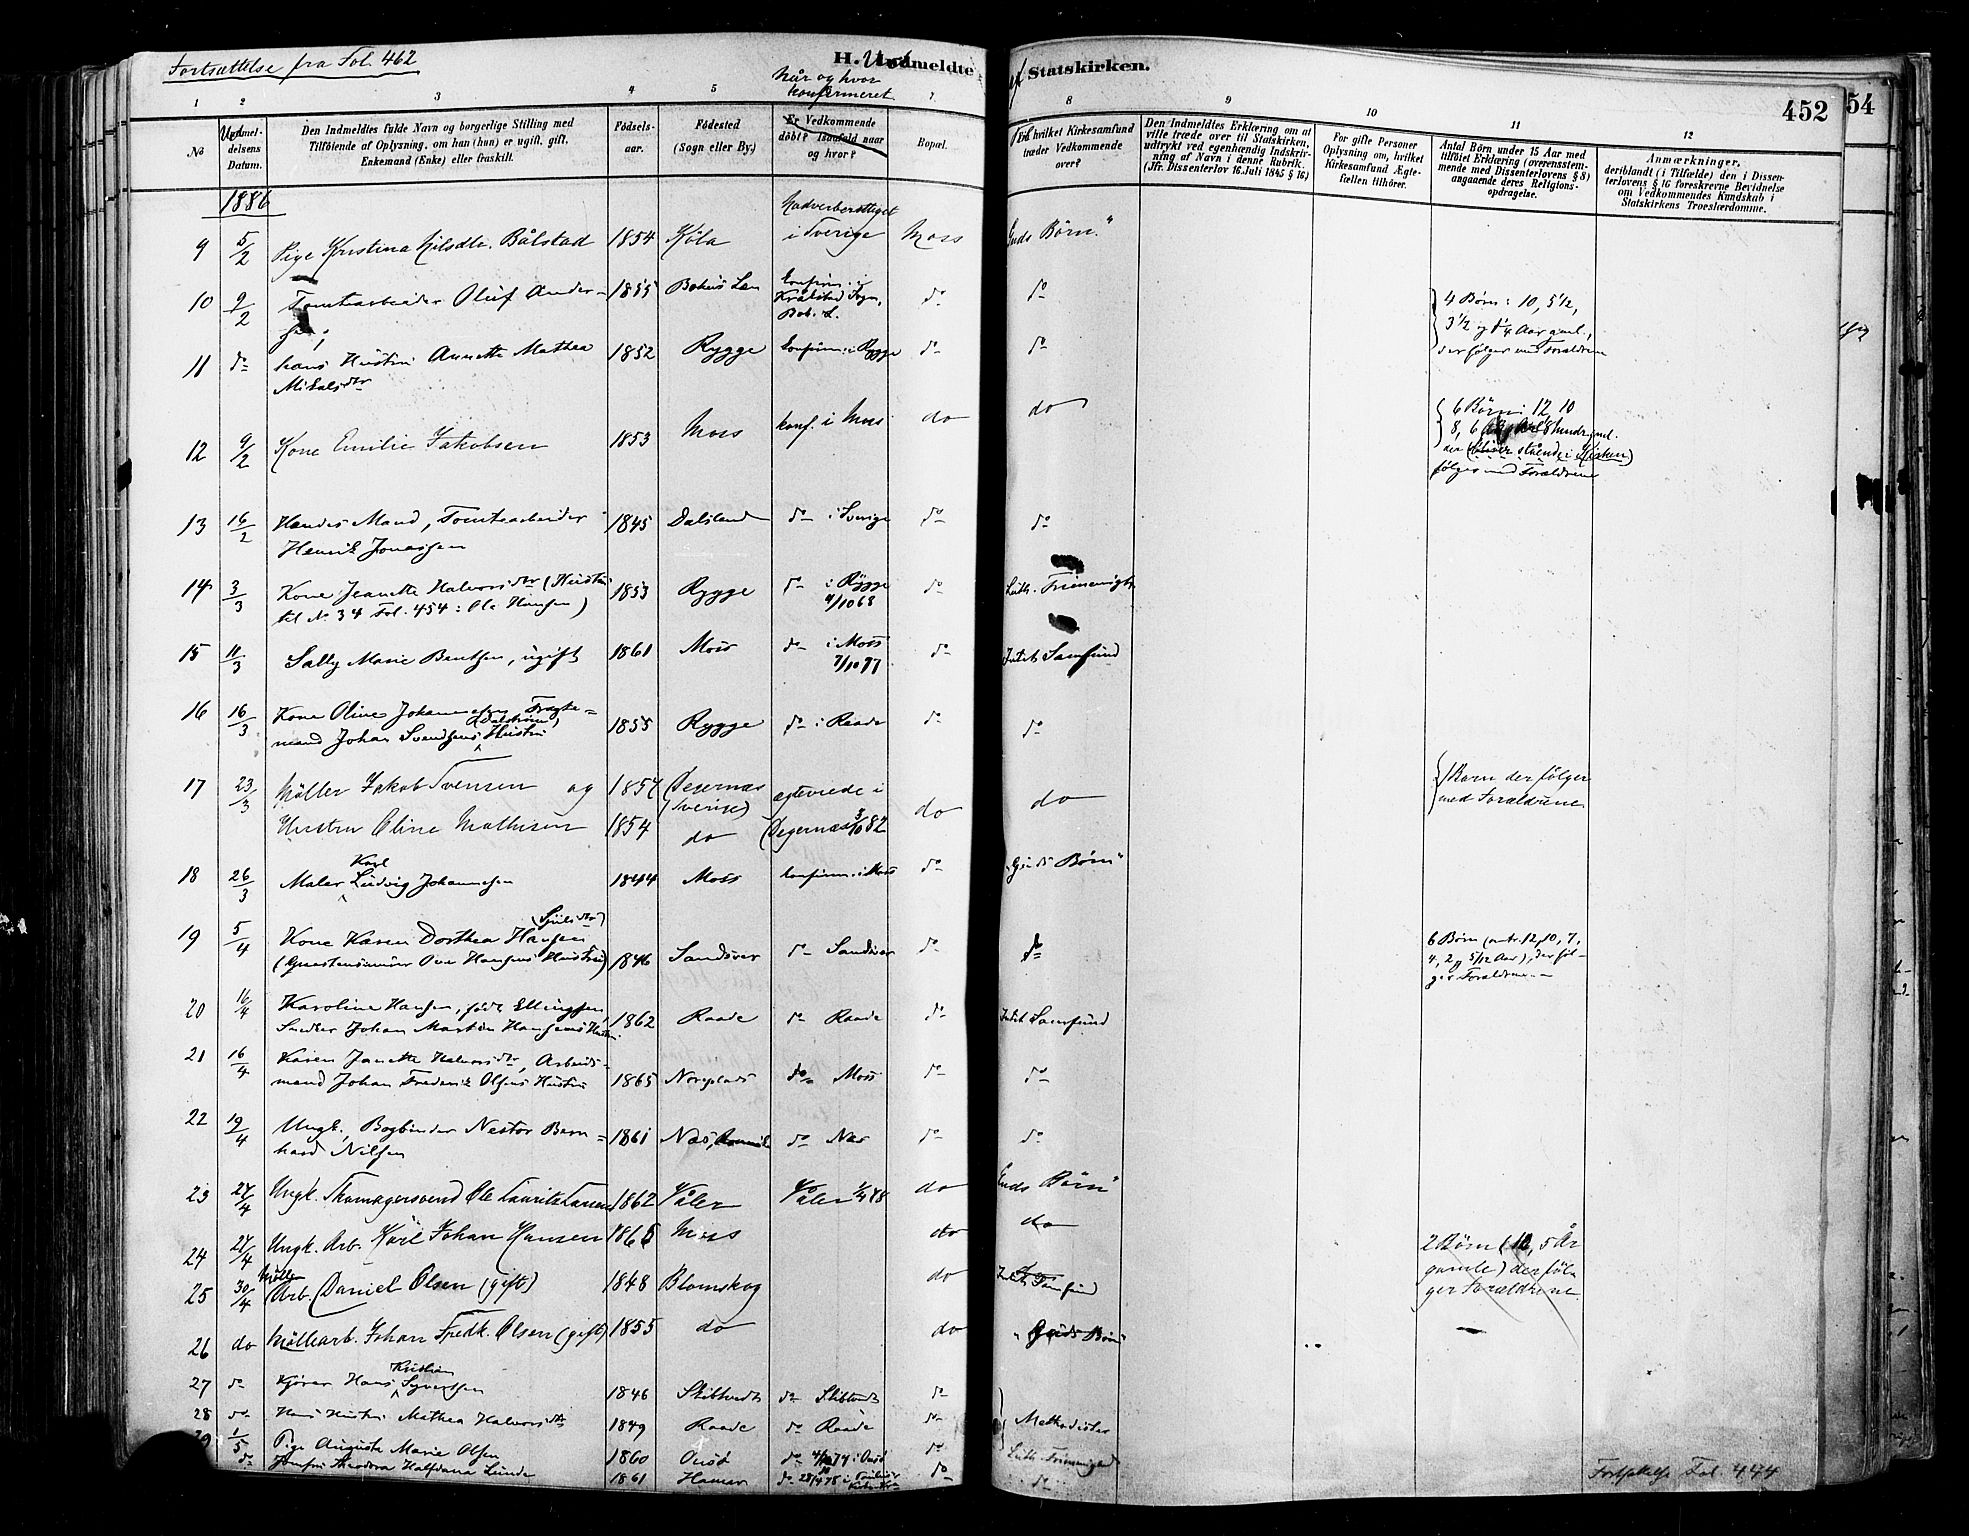 Fortsættelse fra Fol. 462
H. Udmeldte af Statskirken.
452
54
1 2 3 4 5 7 8 9 10 11 12
No
Udmeldelsens Datum.
Den Indmeldtes fulde Navn og borgerlige Stilling med
Tilföiende af Oplysning, om han (hun) er ugift, gift,
Enkemand (Enke) eller fraskilt.
Fødselsaar.
Fødested
(Sogn eller By.)
Når og hvor konfirmeret
Er Vedkommende
döbt? Isaafald naar
og hvor?
Bopæl.
Til hvilket Kirkesamfund
træder Vedkommende
over?
Den Indmeldtes Erklæring om at
ville træde over til Statskirken,
udtrykt ved egenhændig Indskrivning
af Navn i denne Rubrik.
(Jfr. Dissenterlov 16 Juli 1845 § 16)
For gifte Personer
Oplysning om, hvilket
Kirkesamfund Ægtefællen
tilhörer.
Antal Börn under 15 Aar med
tilföiet Erklæring (overensstemmende
med Dissenterlovens § 8)
angaaende deres Religionsopdragelse.
Anmærkninger,
deriblandt (i Tilfælde) den i Dissenterlovens
§ 16 foreskrevne Bevidnelse
om Vedkommendes Kundskab i
Statskirkens Troeslærdomme.
1886
9 5/2 Pige Kristina Nilsdtr. Bålstad 1854 Köla Nadverberettiget i Sverige Moss Guds Børn."
10 9/2 Tomtearbeider Oluf Andersen, 1855 Bohus Len Confirm. i Sogn, Boh. L. do do
4 Børn: 10, 5 1/2,
3 1/2 og 1/4 Aar gml.,
der følger med Forældrene
11 do hans Hustru Annette Mathea Mikalsdtr 1852 Rygge Confirm. i Rygge do do
12 9/2 Kone Emilie Jakobsen 1853 Moss konf. i Moss do do
6 Børn: 12, 10
8, 6
følger med Forældrene
13 16/2 Hendes Mand, Tomtearbeider Henrik Jonassen 1845 Dalsland do i Sverige do do
14 3/3 Kone Jeanette Halvorsdtr (Hustru til No 34 Fol. 454: Ole Hansen) 1853 Rygge do i Rygge 4/10 68 do Luth. Frimenighed
15 11/3 Sally Marie Bentsen, ugift 1861 Moss do i Moss 7/10 77 do Indb. Samfund
16 16/3 Kone Oline Johannesen Fragtemand Johan Svendsens (Dalström) Hustru 1855 Rygge do i Raade do do
17 23/3 Møller Jakob Svensen og 1857 Degernæs (Sverige) ægteviede i do do
Hustru Oline Mathisen 1854 do Degernæs 3/10 82
1 Barn der følger
med Forældrene
18 26/3 Maler Karl Ludvig Johannesen 1844 Moss Confirm. i Moss do "Guds Børn"
19 5/4 Kone Karen Dorthea Hansen (Ove Hansens Hustru) 1846 Sandsver do Sandsver do do
6 Børn (12, 10, 7,
4, 2 og 5/12 Aar), der følger
Forældrene
20 16/4 Karoline Hansen, født Ellingsen, Snedker Johan Martin Hansens Hustru 1862 Raade do Raade do Indb. Samfund
21 16/4 Karen Janette Halvorsdtr, Arbeidsmand Johan Frederik Olsens Hustru 1865 do Moss do do
22 19/4 Ungk., Bogbinder Nestor Bernhard Nilsen 1861 Næs, do Næs do do
23 27/4 Ungk. Ole Lauritz Larsen 1862 Våler Våler 1/4 78 do Guds Børn"
24 27/4 Ungk. Arb. Karl Johan Hansen 1865 Moss do do
25 30/4 Møller Arb. Daniel Olsen (gift) 1848 Blomskog do Indb. Samfund
2 Børn (10, 5 År
gamle) der følger
Forældrene.
26 do Møllearb. Johan Fredk. Olsen (gift) 1855 do do "Guds Børn"
27 do Kjører Hans Kristian Syvertsen 1846 Skibtvedt do Skibtvedt do
28 do Hans Hustru Mathea Halvorsdtr 1849 Raade do Raade do Methodister
29 1/5 Pige Augusta Marie Olsen 1860 Onsø do i Onsø do Luth. Frimenighed
do Jomfru Theodora Halfdana Lunde 1861 Hamar do do do
Fortsættelse Fol. 474